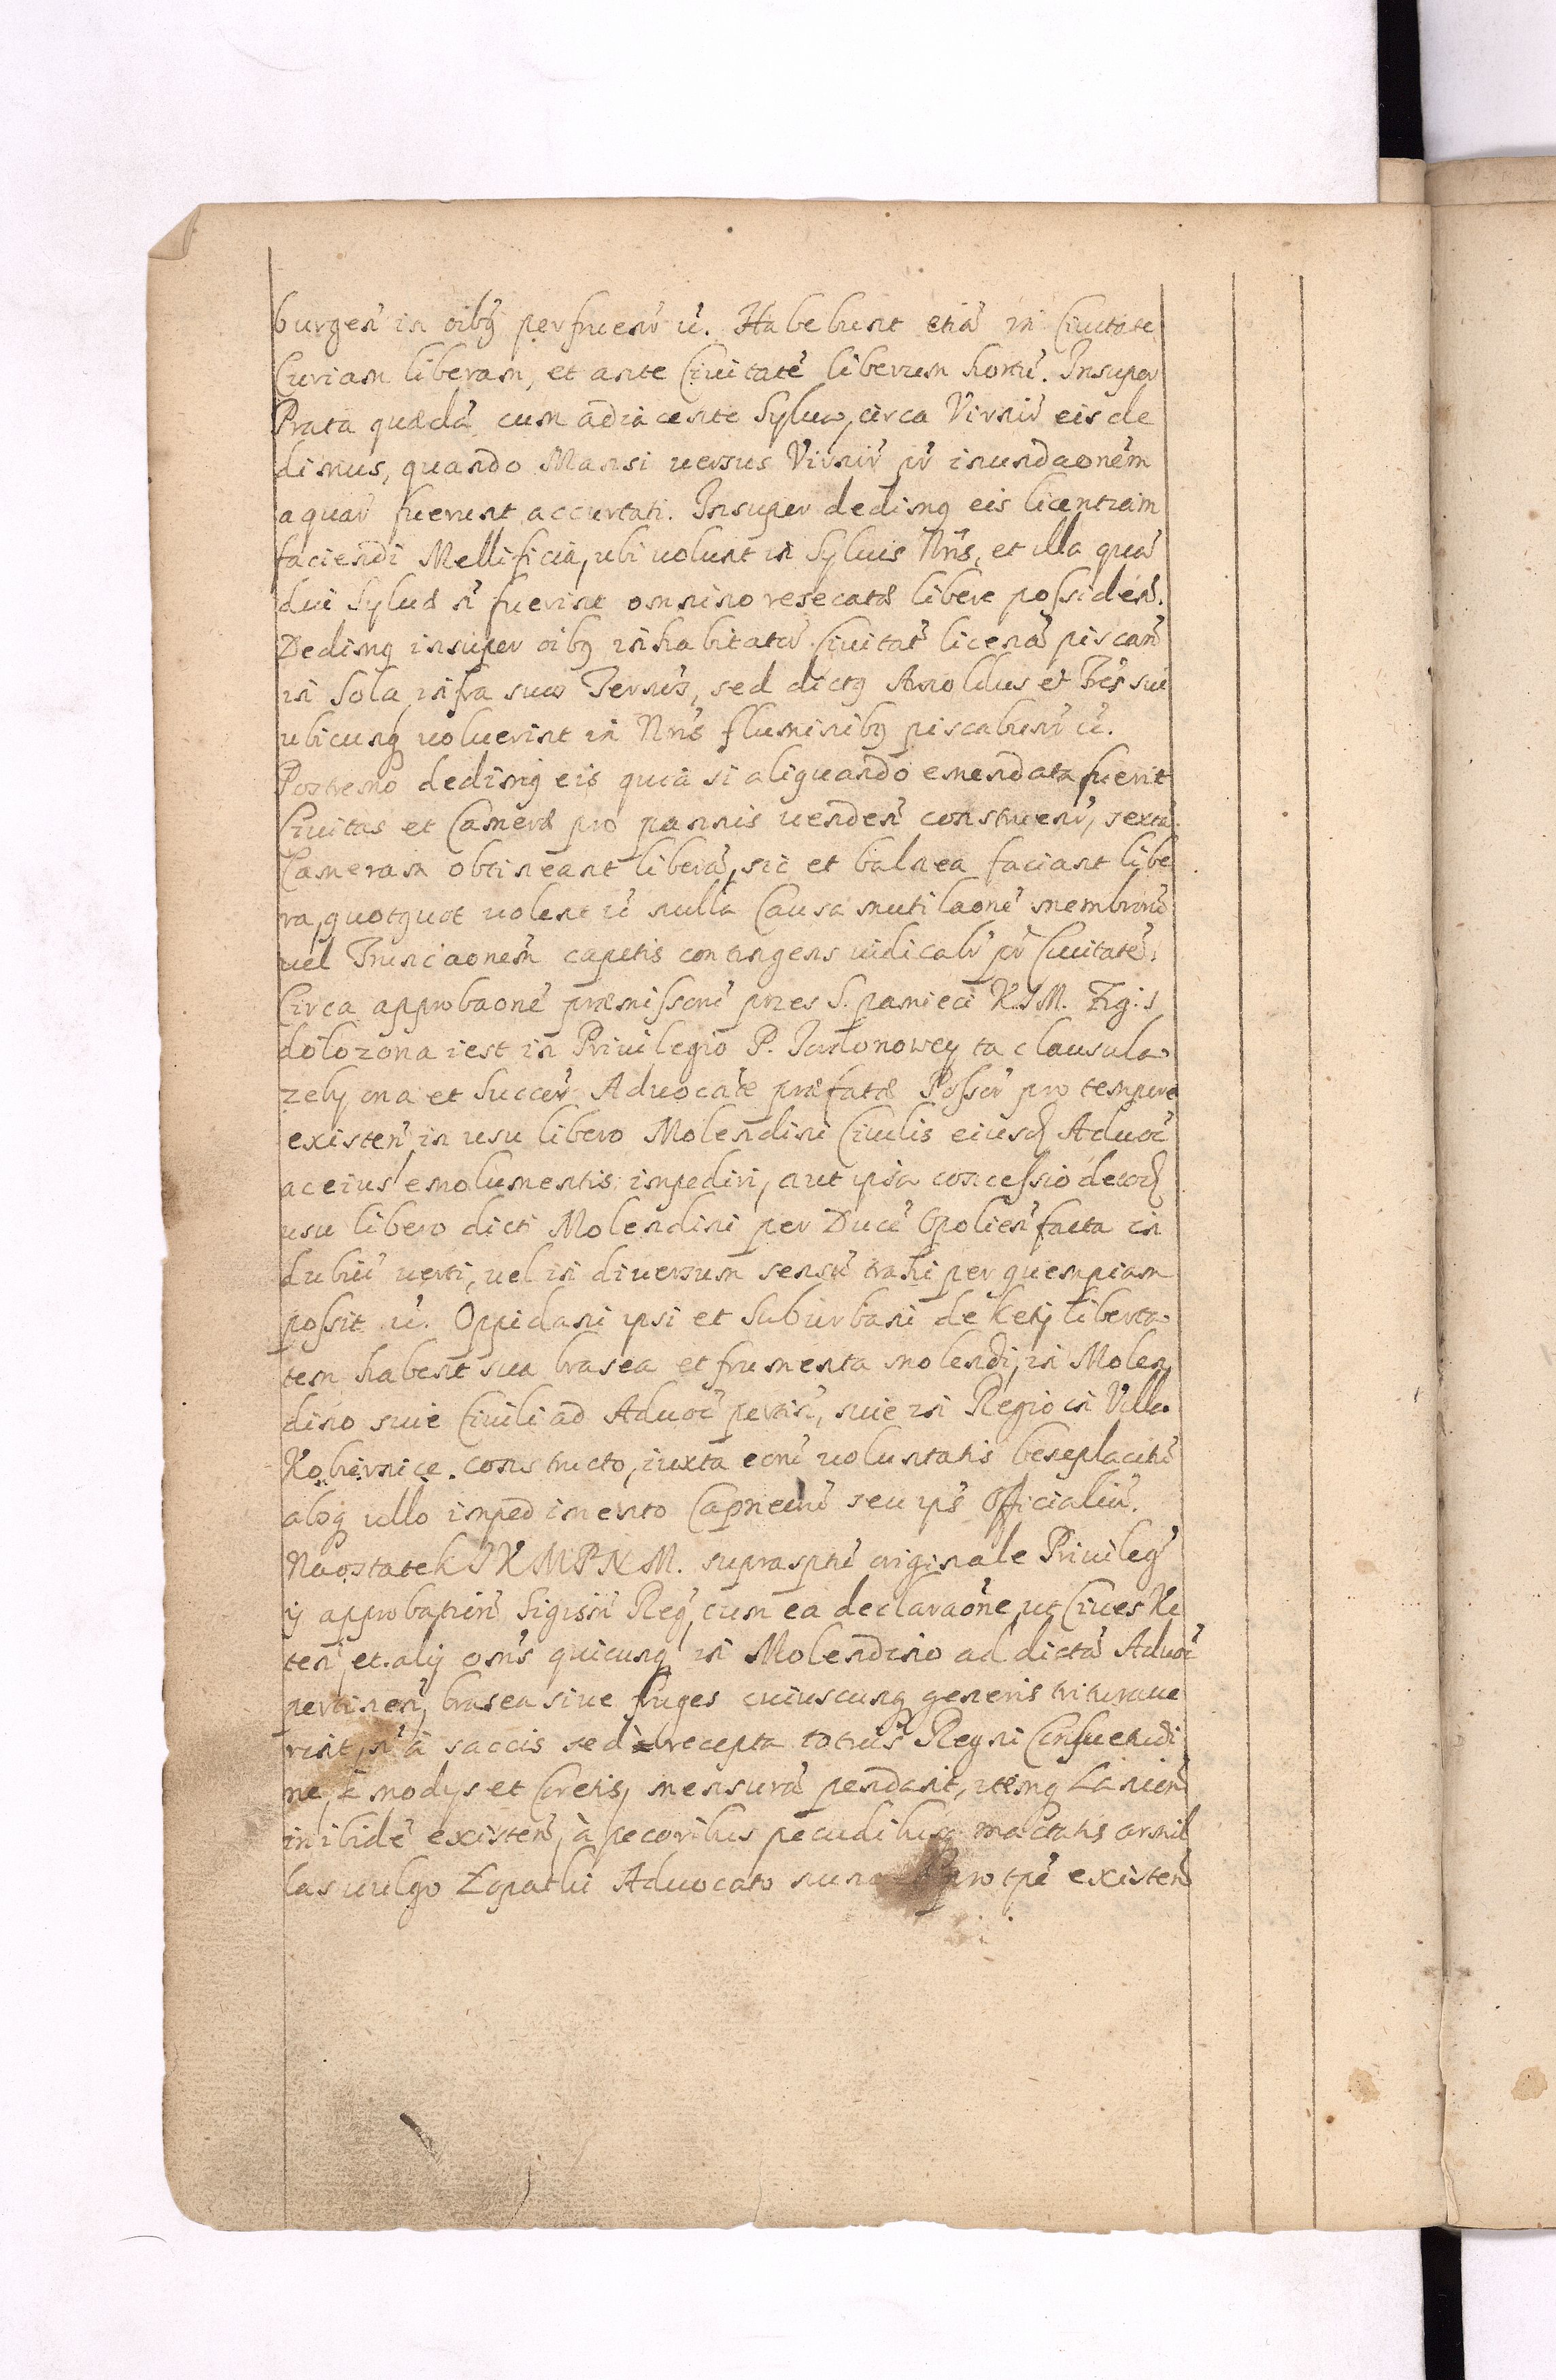 burgeñ in oibq perfruentr ū. Habebunt etiā in Ciuitate
Curiam liberam, et ante Ciuitatē liberum hortū. Insuper
Prata quædā cum adiacente Sylua, circa Virniū eis de
dimus, quando Mansi uersus Virniū pr inundaonēm
aquar̄ fuerunt accurtati. Insuper dedimq eis licentiam
faciendi Mellificia, ubi uolunt in Syluis Nr̄is, et illa quā
diu Syluæ ñ fuerint omnino resecatæ libere possideñ.
Dedimq insuper oibq inhabitator̄ Ciuitat̄ licenā piscañ
in Sola infra suos Termōs, sed dictq Arnoldus et Fr̄es sui
ubicunq uoluerint in Nr̄is fluminibq piscabuntr ū.
Postremo dedimq eis quiā si aliquando emendata fuerit
Ciuitas et Cameræ pro pannis uendeñ construentr, sextā
Cameram obtineant liberā, sic et balnea faciant libe
ra, quotquot uolent ū nulla Causa mutilaonē membrorū
uel Truncaonem capitis contingens iudicabr̄ pr Ciuitatē.
Circa approbaonē præmissorū przes S. pamieci K.J.M. Zig: 1
dolozona iest in Priuilegio P. Jarlonowey ta clausula
zeby ona et Succer̄ Aduocatæ præfatæ Possor̄ pro tempore
existeñ in usu libero Molendini Ciuilis eiusd Aduoc̄
ac eius emolumentis impediri, aut ipsa concessio de eod
usu libero dicti Molendini per Ducē Opolieñ facta in
dubiū uerti, uel in diuersum sensū trahi per quempiam
possit ū. Oppidani ipsi et Suburbani de Kety liberta
tem habent sua brasea et frumenta molendi, in Molen
dino siue Ciuili ad Aduoc̄ pertiñ, siue in Regio in Villa
Kobiernice constructo, iuxta eorū uoluntatis beneplacitū
absq ullo impedimento Capneorū seu ips̄ Officialiū.
Naostatek J K M P N M. suprasptū originale Priuileg̃
ij approbatum Sigism̄ Reg̃, cum ea declaraōne, ut Ciues Ke
teñ, et alij om̄s quicunq in Molendino ad dictā Aduoc̄
pertineñ, brasea siue fruges cuiuscunq generis trituraue
rint, ñ à saccis sed à recepta totius Regni Consuetudi
ne, à modys et Coretis, mensurā pendant, itemq Lanion̄
inibidē existeñ, à pecoribus pecudibusq mactatis armil
las uulgo Łopatki Aduocato nunc et pro tpē existeñ